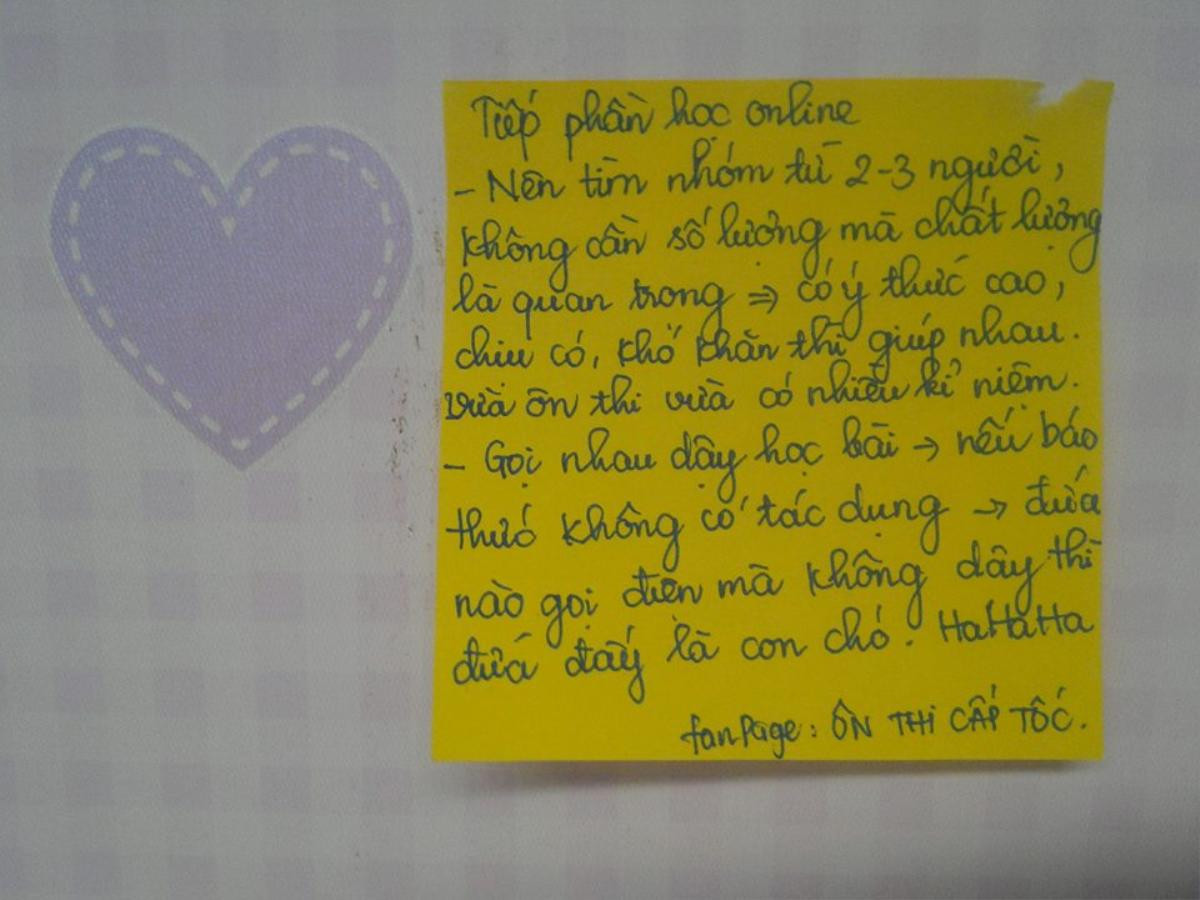 Tiếp phần học online
- Nên tìm nhóm từ 2-3 người,
không cần số lượng mà chất lượng
là quan trọng => có ý thức cao,
chịu có, khó khăn thì giúp nhau.
vừa ôn thi vừa có nhiều kỉ niệm.
- Gọi nhau dậy học bài → nếu báo
thức không có tác dụng → đứa
nào gọi điện mà không dậy thì
đứa đấy là con chó. HaHaHa
fanPage: ÔN THI CẤP TỐC.